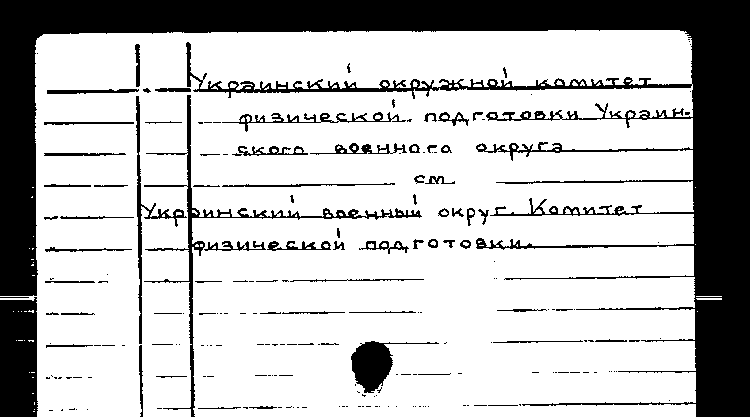 Украинский окружной комитет
физической подготовки Украин-
ского военного округа
см.
Украинский военный округ. Комитет
физической подготовки.